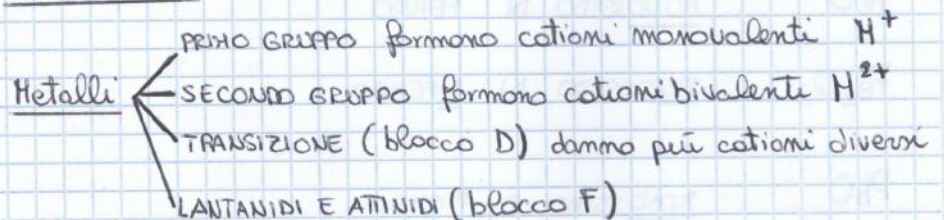 PRIMO GRUPPO formono cationi monovalenti M⁺
Metalli
SECONDO GRUPPO formono cationi bivalenti M²⁺
TRANSIZIONE (blocco D) danno più cationi diversi
LANTANIDI E ATTINIDI (blocco F)